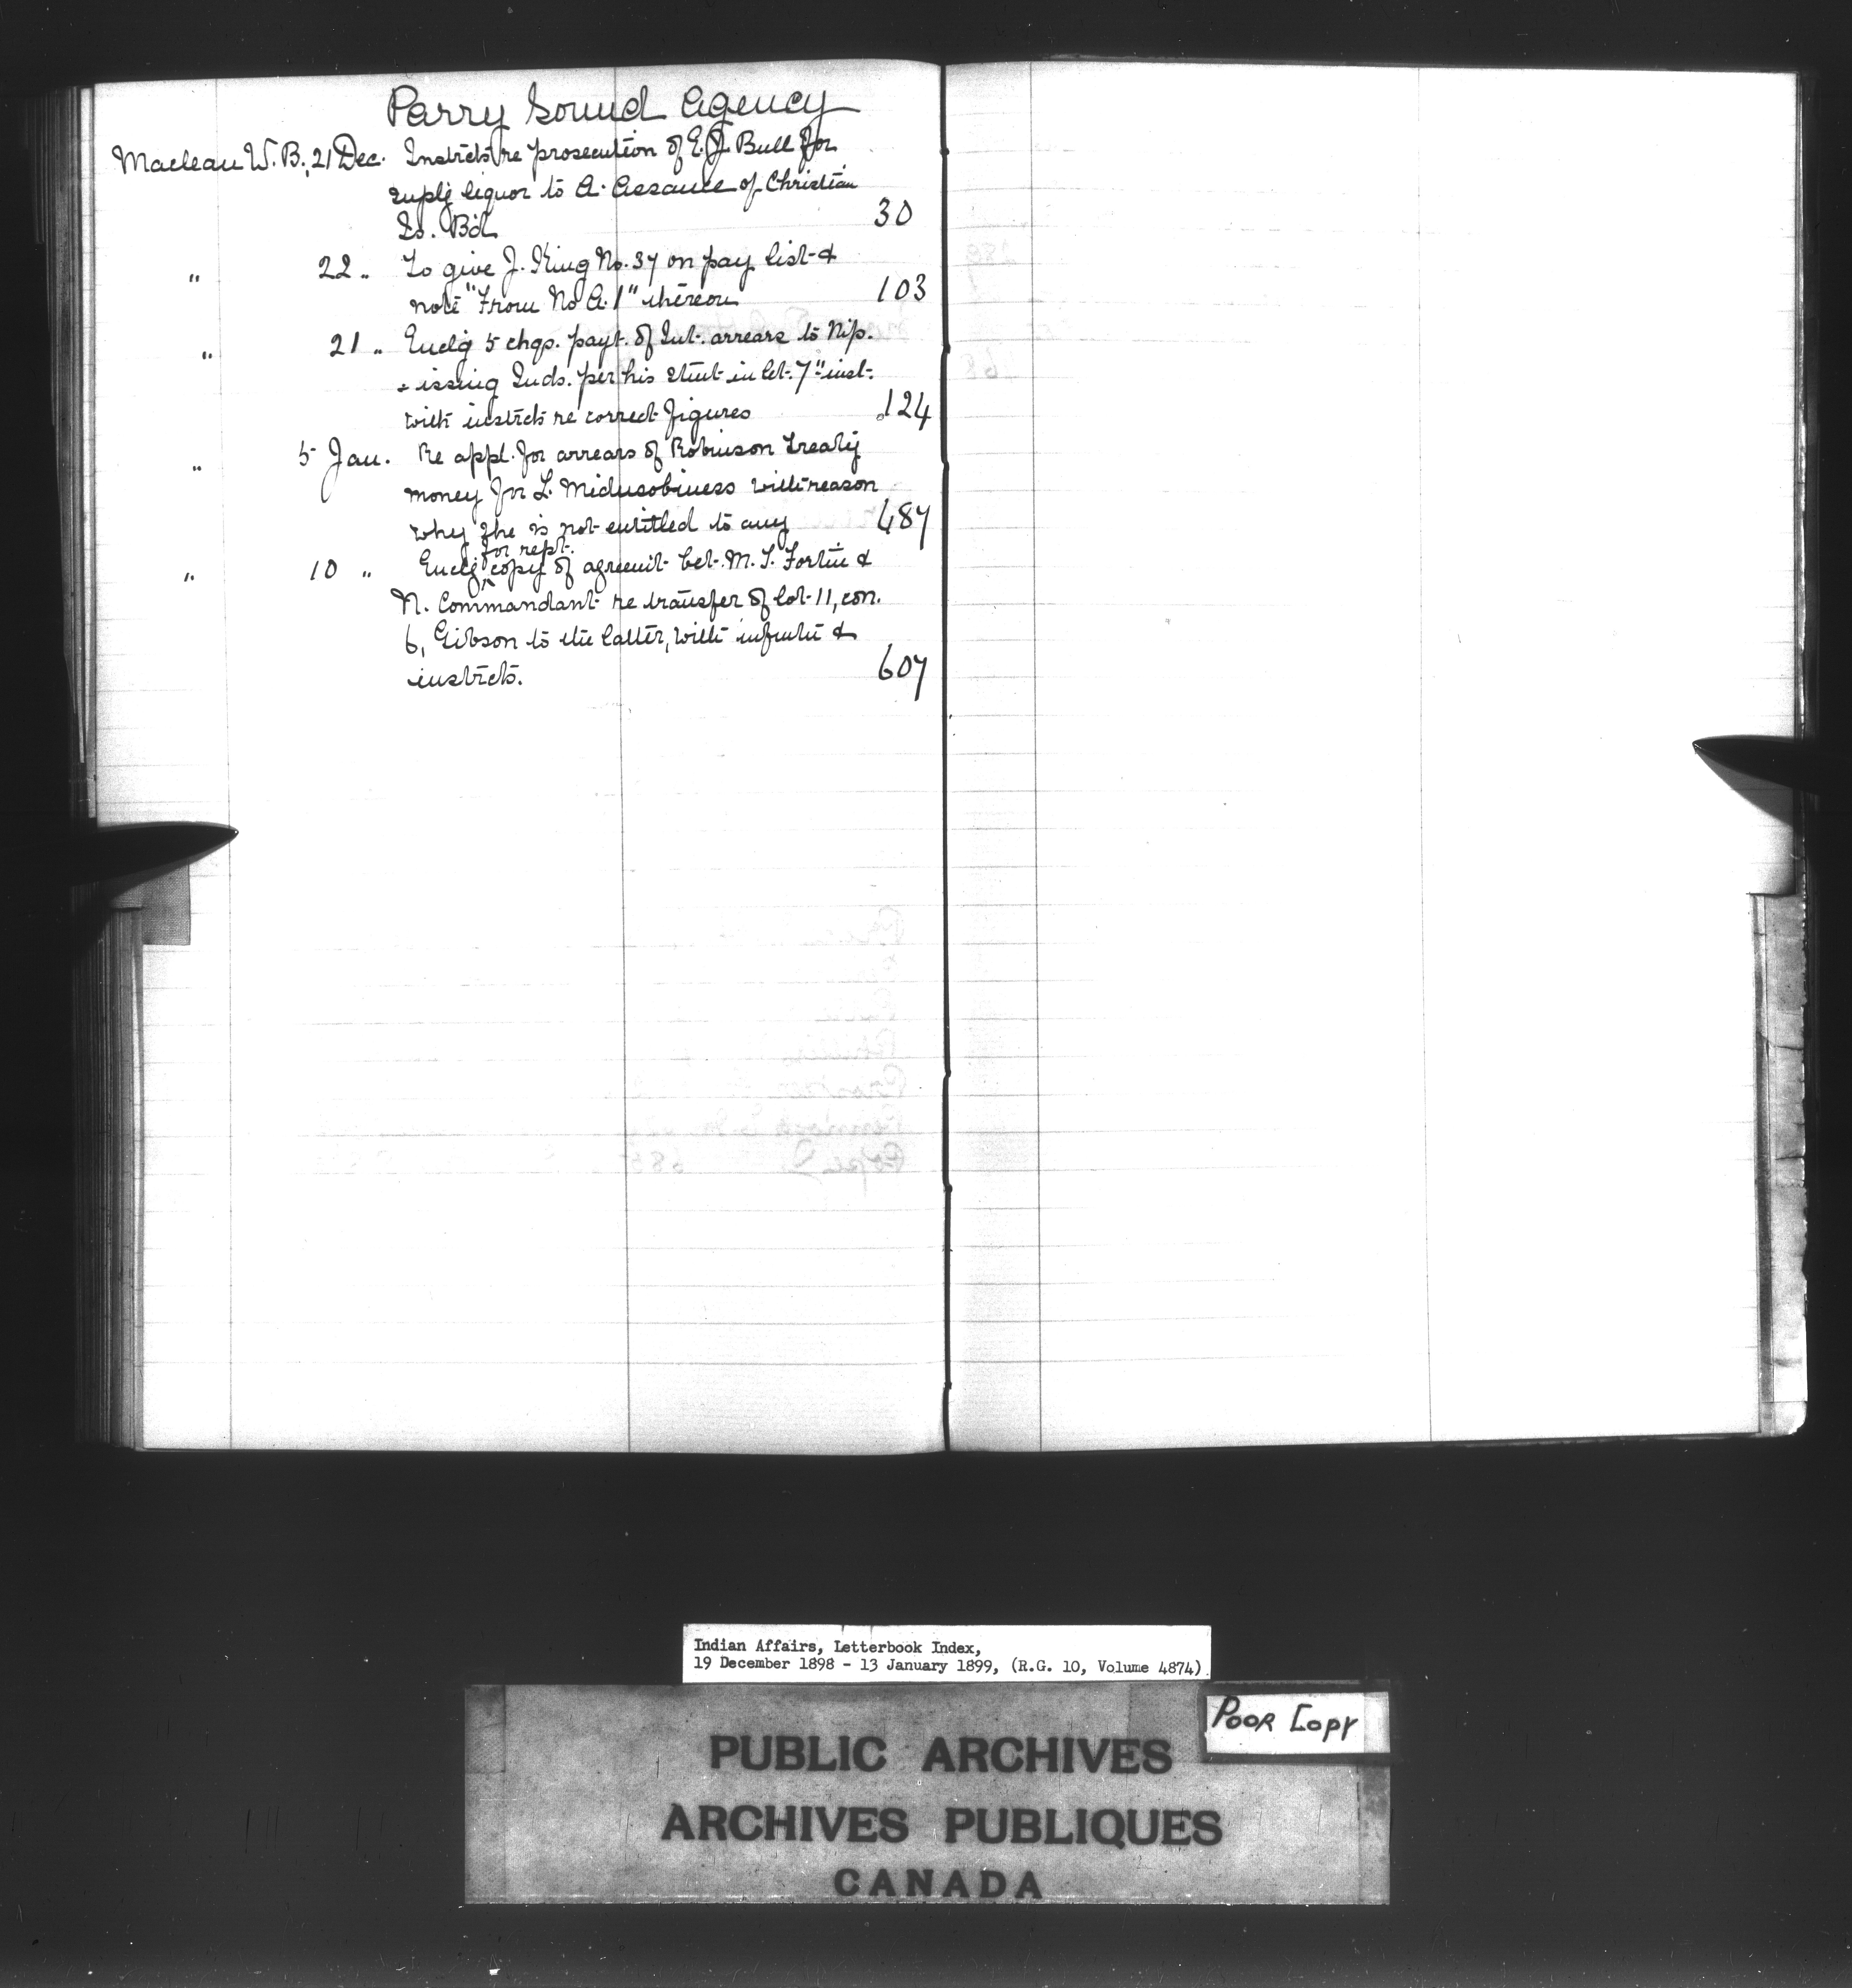 Parry Sound Agency
Maclean W. B., 21 Dec. Instrcts re prosecution of E. J. Bull for
supl'g liquor to A. Assance of Christian
Is. B'd. 30
" 22 " To give J. King No. 37 on pay list &
note "From No A. 1" thereon 103
" 21 " Encl'g 5 chqs. payt. of Int. arrears to Nip-
issing Inds. per his stmt in let. 7" inst.
with instrcts re correct figures 124
" 5 Jan. Re appl. for arrears of Robinson Treaty
money for L. with reason
why she is not entitled to any 487
for rept.
" 10 " Encl'g copy of agreemt bet. M. T. Fortin &
N. Commandant re transfer of lot 11, con.
6, Gibson to the latter, with infmtn &
instrcts. 607
Indian Affairs, Letterbook Index,
19 December 1898 - 13 January 1899, (R.G. 10, Volume 4874)
Poor Copy
PUBLIC ARCHIVES
ARCHIVES PUBLIQUES
CANADA